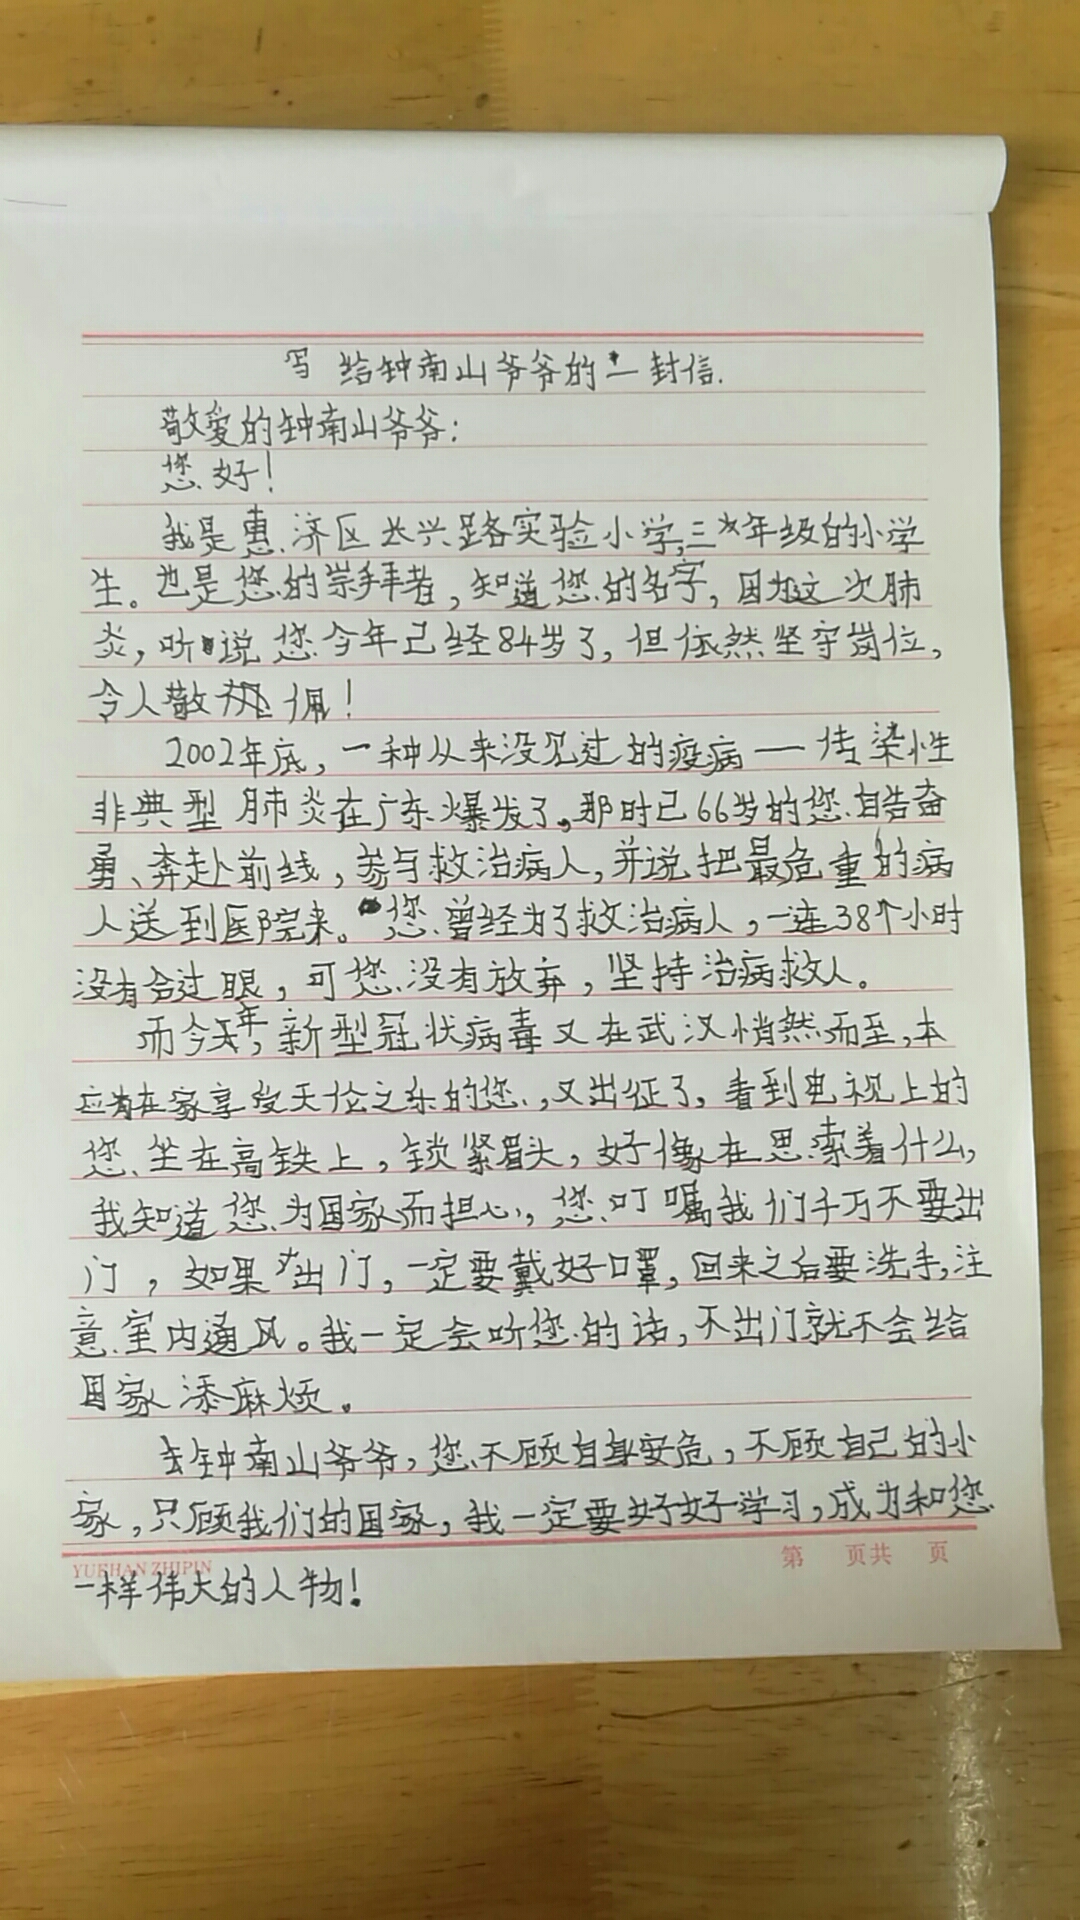 写给钟南山爷爷的一封信.
敬爱的钟南山爷爷:
您好!
我是惠济区长兴路实验小学,三年级的小学
生。也是您的崇拜者,知道您的名字,因为这次肺
炎,听说您今年已经84岁了,但依然坚守岗位,
令人敬佩!
2002年底,一种从来没见过的疫病——传染性
非典型肺炎在广东爆发了。那时已66岁的您自告奋
勇、奔赴前线,参与救治病人,并说把最危重的病
人送到医院来。您曾经为了救治病人,一连38个小时
没有合过眼,可您没有放弃,坚持治病救人。
而今年,新型冠状病毒又在武汉悄然而至,本
应在家享受天伦之乐的您,又出征了,看到电视上的
您坐在高铁上,锁紧眉头,好像在思索着什么,
我知道您为国家而担心,您叮嘱我们千万不要出
门,如果出门,一定要戴好口罩,回来之后要洗手,注
意室内通风。我一定会听您的话,不出门就不会给
国家添麻烦。
钟南山爷爷,您不顾自身安危,不顾自己的小
家,只顾我们的国家,我一定要好好学习,成为和您
YUEHAN ZHIPIN 第 页共 页
一样伟大的人物!